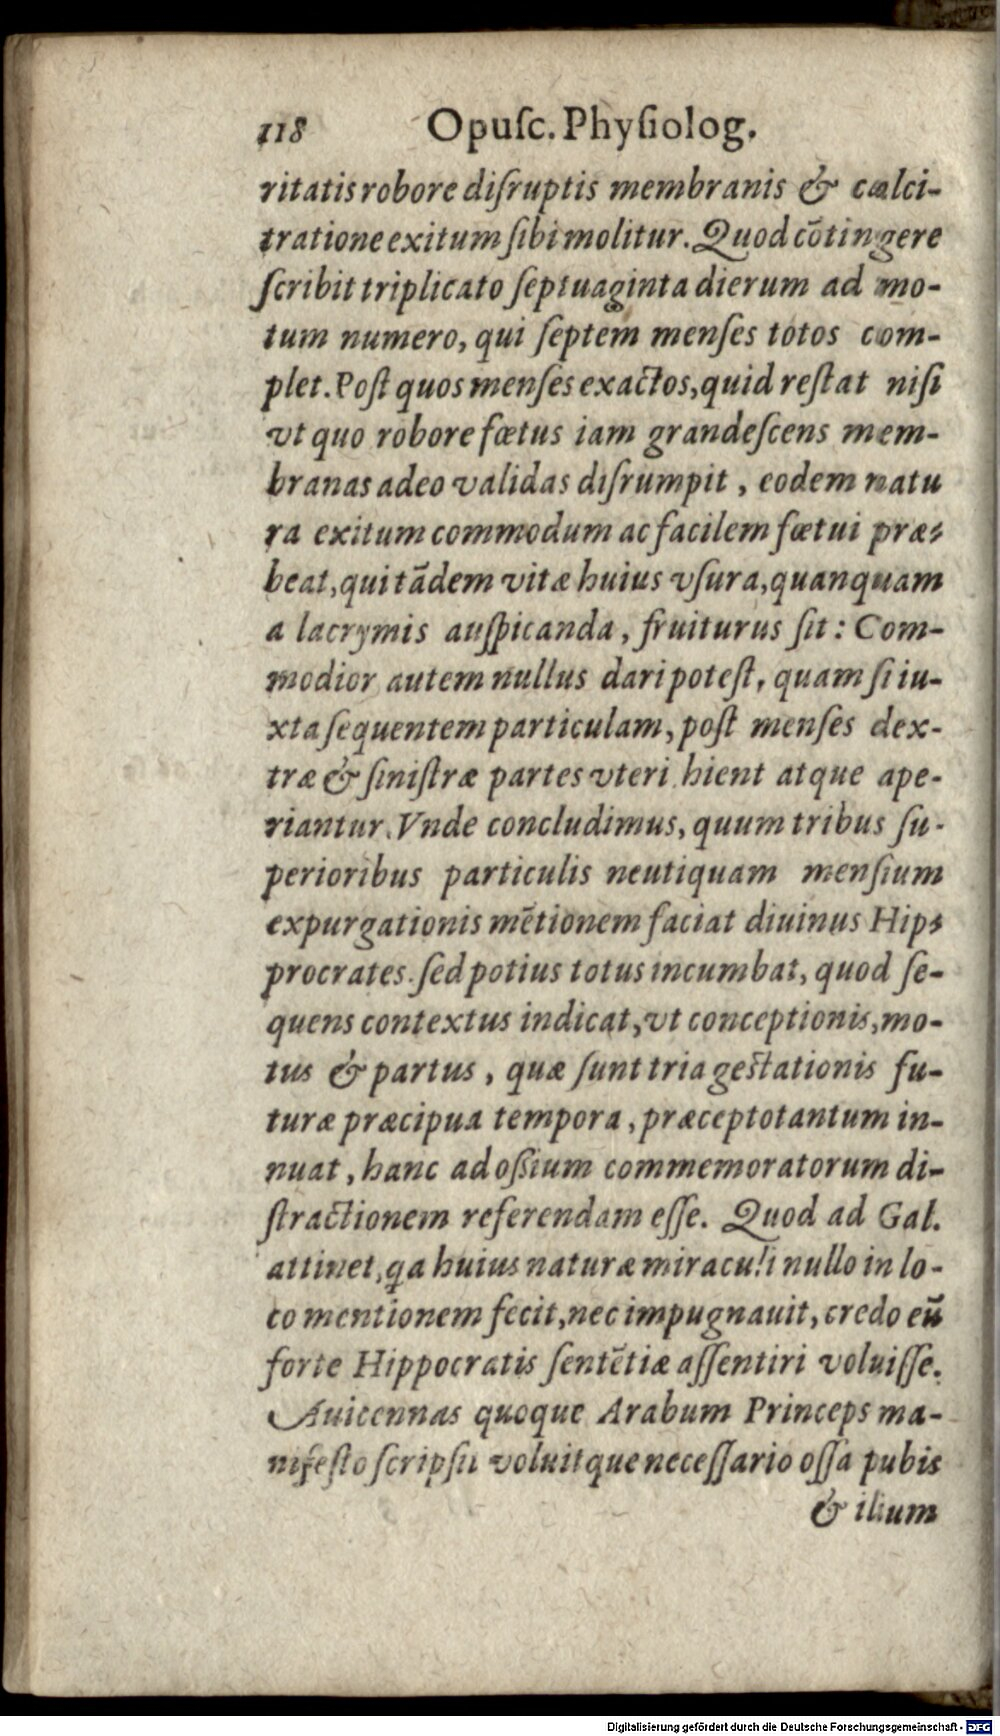 118 Opuſc. Phyſiolog.
ritatis robore diſruptis membranis & calci-
tratione exitum ſibi molitur. Quod cōtingere
ſcribit triplicato ſeptuaginta dierum ad mo-
tum numero, qui ſeptem menſes totos com-
plet. Poſt quos menſes exactos, quid reſtat niſi
vt quo robore fœtus iam grandeſcens mem-
branas adeo validas diſrumpit, eodem natu
ra exitum commodum ac facilem fœtui præ-
beat, qui tādem vitæ huius vſura, quanquam
a lacrymis auſpicanda, fruiturus ſit: Com-
modior autem nullus dari poteſt, quam ſi iu-
xta ſequentem particulam, poſt menſes dex-
træ & ſiniſtræ partes vteri hient atque ape-
riantur. Vnde concludimus, quum tribus ſu-
perioribus particulis neutiquam menſium
expurgationis mētionem faciat diuinus Hip-
procrates. ſed potius totus incumbat, quod ſe-
quens contextus indicat, vt conceptionis, mo-
tus & partus, quæ ſunt tria geſtationis fu-
turæ præcipua tempora, præcepto tantum in-
nuat, hanc ad oſſium commemoratorum di-
ſtractionem referendam eſſe. Quod ad Gal.
attinet, qa huius naturæ miraculi nullo in lo-
co mentionem fecit, nec impugnauit, credo eū
forte Hippocratis ſentētiæ aſſentiri voluiſſe.
Auicennas quoque Arabum Princeps ma-
nifeſto ſcripſit voluitque neceſſario oſſa pubis
& ilium
Digitalisierung gefördert durch die Deutsche Forschungsgemeinschaft - DFG